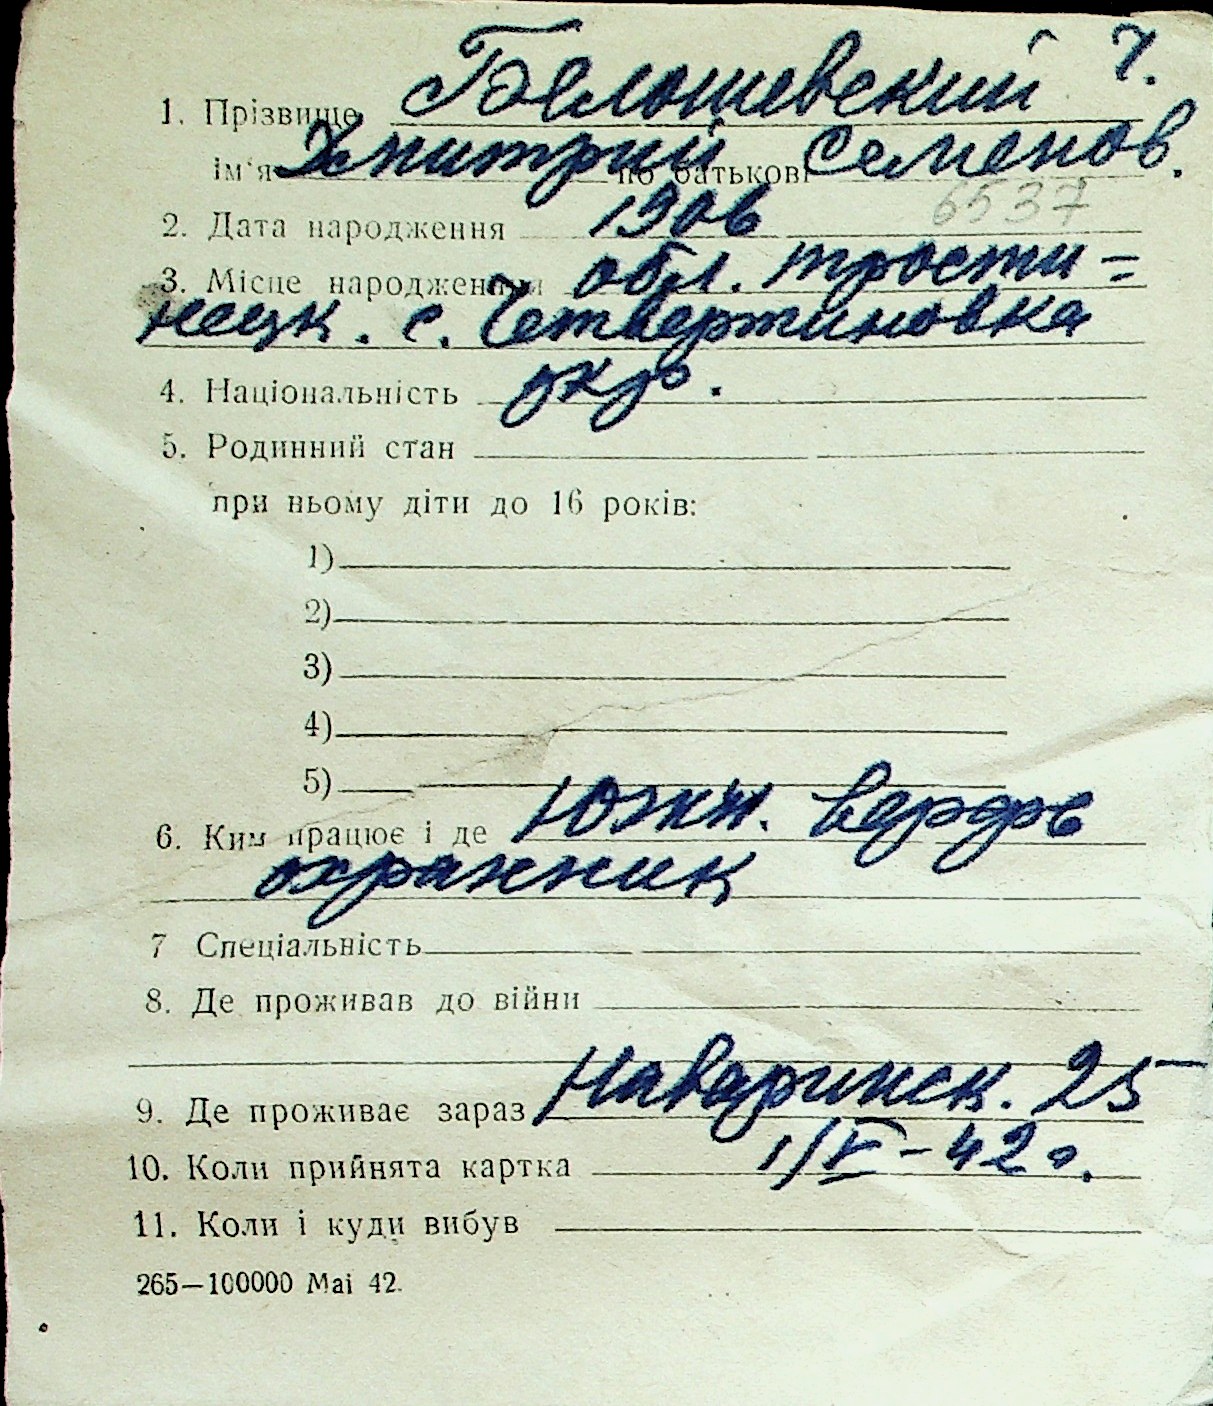 ч.
1. Прізвище Белошевский
ім'я Дмитрий по батькові Семенов.
6537
2. Дата народження 1906
3. Місце народження обл. трости=
нецк. с. Четвертиновка
4. Національність укр.
5. Родинний стан
при ньому діти до 16 років:
1)
2)
3)
4)
5)
6. Ким працює і де Южн. верфь
охранник
7 Спеціальність
8. Де проживав до війни
9. Де проживає зараз Наваринск. 25
10. Коли прийнята картка 1/V-42 г.
11. Коли і куди вибув
265—100000 Mai 42.